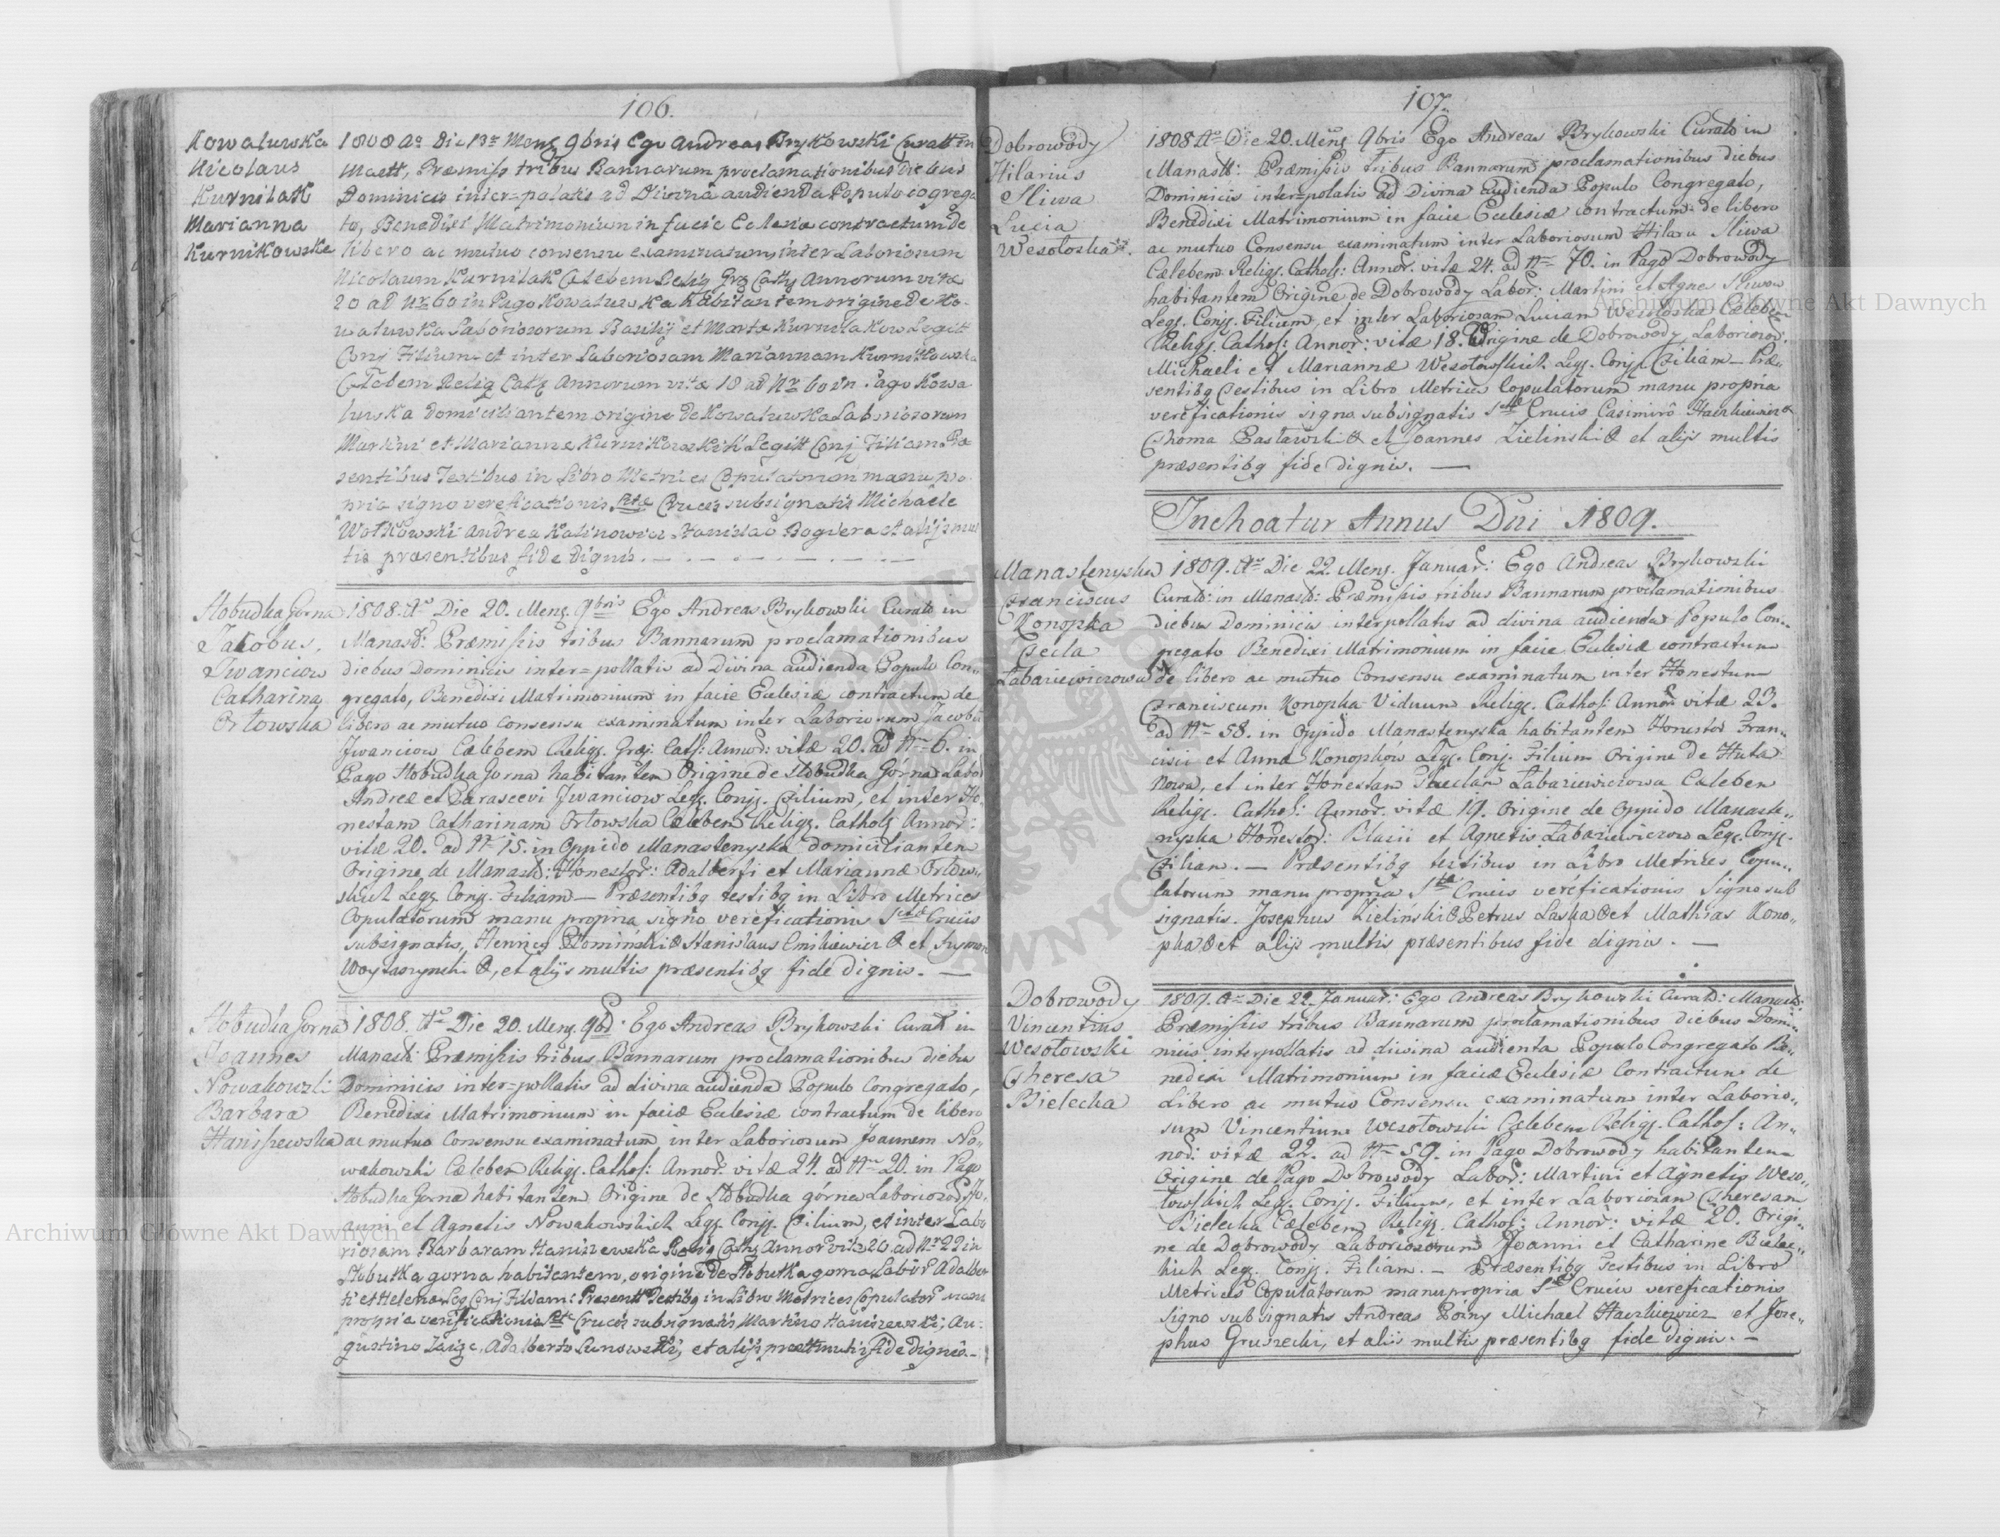 106.
Kowaluwka
Nicolaus
Kurnilak
Marianna
Kurnikowske
1808 Ao Die 13 Mens 9bris Ego Andreas Brykowski Curatt in
Mastt, Præmiss tribus Bannarum proclamationibus diebus
Dominicis inter=polatis ad Divina audienda Populo cogrega
to, Benedixi Matrimonium in facie Eclesiæ contractum de
libero ac mutuo consensu examinatum inter Laboriosum
Nicolaum Kurnilak Celebem Relig Grg Catg Annorum vitæ
20 ad Nr 60 in Pago Kowaluwka habitantem origine de Ko-
waluwka Laboriosorum Basilij et Marta Kurnilakow Legitt
Conj Filium et inter Laboriosam Mariannam Kurnikowska
Celebem Relig Catg Annorum vitæ 18 ad Nr 60 in Pago Kowa
luwka domiciliantem origine de Kowaluwka Laboriosorum
Martini et Marianne Kurnikowskich Legitt Conj Filiam Præ
sentibus Testibus in Libro Metrices Copulatorum manu pro
pria signo verificationis Stæ Crucis subsignatis Michaele
Wolkowski Andrea Kalinowicz Stanislao Bogdera et alijs mul
tis præsentibus fide dignis. — — —
Słobudka Gorna
Jacobus,
Iwanciow
Catharina
Orłowska
1808. Ao Die 20. Mens. 9bris Ego Andreas Brykowski Curato in
Manast: Præmissis tribus Bannarum proclamationibus
diebus Dominicis inter=pollatis ad Divina audienda Populo Con=
gregato, Benedixi Matrimonium in facie Eclesiæ contractum de
libero ac mutuo consensu examinatum inter Laboriosum Jacobũ
Iwanciow Cælebem Religs. Græc: Cath: Annor: vitæ 20. ad Nr 6. in
Pago Słobudka Gorna habitantem Origine de Słobudka Górna Labor
Andreæ et Parascevi Iwanciow Leg. Conj. Filium, et inter Ho-
nestam Catharinam Orłowska Cælebem Religs. Catholg Annor:
vitæ 20. ad Nr 15. in Oppido Manastenyska domiciliantem
Origine de Manast: Honestor: Adalberti et Mariannæ Orłow=
skich Leg. Conj. Filiam — Præsentibg testibg in Libro Metrices
Copulatorum manu propria signo verificationis Sctæ Crucis
subsignatis, Henricg Słomiński Stanislaus Cmikiewicz et Szymon
Woytaszynski, et alijs multis præsentibg fide dignis. —
Słobudka Gorna
Joannes
Nowakowski
Barbara
Haniszewska
1808. Ao Die 20. Mens. 9br: Ego Andreas Brykowski Curatt in
Manast: Præmissis tribus Bannarum proclamationibus diebus
Dominicis inter=pollatis ad divina audienda Populo Congregato,
Benedixi Matrimonium in faciæ Eclesiæ contractum de libero
ac mutuo Consensu examinatum inter Laboriosum Joannem No=
wakowski Cælebem Religs. Cathol: Annor: vitæ 24. ad Nr 20. in Pago
Słobudka Gorna habitantem Origine de Słobudka górna Laboriosor Jo-
anni et Agnetis Nowakowskich Leg. Conj. Filium, et inter Labo
riosam Barbaram Haniszewska Relig Catg Annor vitæ 20. ad Nr 22 in
Słobutka gorna habitentem, origine de Słobutka gorna Labor Adalber
ti et Helenæ Leg Conj Filiam: Presentt Testibg in Libro Metrices Copulator manu
propria verificationis Stæ Crucis subsignatis Martino Haniszewski, Au-
gustino Zaigc, Adalberto Lunowski, et alijs præstt multis fide dignis. —
107.
Dobrowody
Hilarius
Sliwa
Lucia
Wesołoska.
1808 Ao Die 20. Mens 9bris Ego Andreas Brykowski Curato in
Manastt: Præmissis tribus Bannarum proclamationibus diebus
Dominicis inter=polatis ad Divina audienda Populo Congregato,
Benedixi Matrimonium in facie Eclesiæ contractum de libero
ac mutuo Consensu examinatum inter Laboriosum Hilaru Sliwa
Cælebem Religs. Cathol: Annor. vitæ 24. ad Nr 70. in Pago Dobrowody
habitantem Origine de Dobrowody Labor: Martini et Agne Sliwow
Legs. Conj. Filium, et inter Laboriosam Luciam Wesołoska Cælebem
Religs. Cathol: Annor: vitæ 18. Origine de Dobrowody Laboriosor.
Michaeli et Mariannæ Wesołowskich Leg. Conj. Filiam — Præ=
sentibg Testibus in Libro Metrices Copulatorum manu propria
verificationis signo subsignatis Sctæ Crucis Casimirô Haczkiewicz
Thoma Pastawski et Joannes Zielinski et alijs multis
præsentibg fide dignis. —
Inchoatur Annus Dni 1809.
Manastenyska
Franciscus
Konopka
Tecla
Łabaziewiczowa
1809. Ao Die 22. Mens. Januar: Ego Andreas Brykowski
Curato: in Manast: Præmissis tribus Bannarum proclamationibus
diebus Dominicis interpollatis ad divina audienda Populo Con=
gregato Benedixi Matrimonium in facie Eclesiæ contractum
de libero ac mutuo Consensu examinatum inter Honestum
Franciscum Konopka Viduum Religs. Cathol: Annor: vitæ 23.
ad Nr 58. in Oppido Manastenyska habitantem Honestor Fran=
cisci et Anna Konopków Leg. Conj. Filium Origine de Huta
Nowa, et inter Honestam Theclam Łabaziewiczowa Cælebem
Religs. Cathol: Annor: vitæ 19. Origine de Oppido Manaste=
nyska Honestor: Blasii et Agnetis Łabaziewiczow Leg. Conj.
Filiam. — Præsentibg testibus in Libro Metrices Copu=
latorum manu propria Sctæ Crucis verificationis Signo sub
signatis. Josephus Zieliński Petrus Laska et Mathias Kono=
pka et alijs multis præsentibus fide dignis. —
Dobrowody
Vincentius
Wesołowski
Theresa
Bielecka
1809. Ao Die 22. Januar: Ego Andreas Brykowski Curato: Manast:
Præmissis tribus Bannarum proclamationibus diebus Domi=
nicis interpollatis ad divina audienta Populo Congregato Be=
nedixi Matrimonium in faciæ Eclesiæ Contractum de
Libero ac mutuo Consensu examinatum inter Laborio=
sum Vincentium Wesołowski Cælebem Religs. Cathol: An=
nor: vitæ 22. ad Nr 59. in Pago Dobrowody habitantem
Origine de Pago Dobrowody Labor: Martini et Agnetis Weso=
łowskich Leg. Conj. Filium, et inter Laboriosam Theresam
Bielecka Cælebem Religs. Cathol: Annor: vitæ 20. Origi=
ne de Dobrowody Laboriosorum Joanni et Catharinæ Bielec=
kich Leg. Conj. Filiam. — Præsentibg Testibus in Libro
Metrices Copulatorum manu propria Sctæ Crucis verificationis
signo subsignatis Andreas Poiny Michael Haczkiewicz et Jose=
phus Gruszecki, et aliis multis præsentibg fide dignis. —
Archiwum Główne Akt Dawnych
Archiwum Główne Akt Dawnych